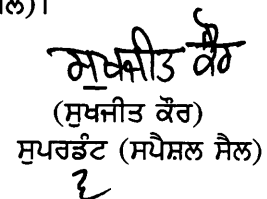 ਲ)।
ਸੁਖਜੀਤ ਕੌਰ
(ਸੁਖਜੀਤ ਕੌਰ)
ਸੁਪਰਡੰਟ (ਸਪੈਸ਼ਲ ਸੈਲ)